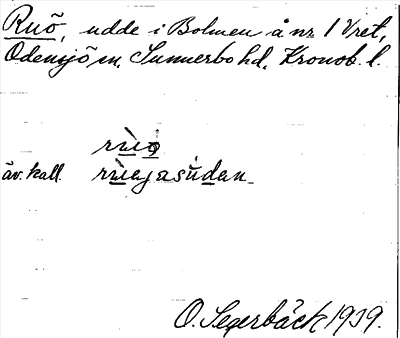 Ruö, udde i Bolmen å nr 1 Vret,
Odensjö sn, Sunnerbo hd, Kronob. l.
rùiọ
äv. kall. rùiejasùdan
O. Segerbäck 1939.